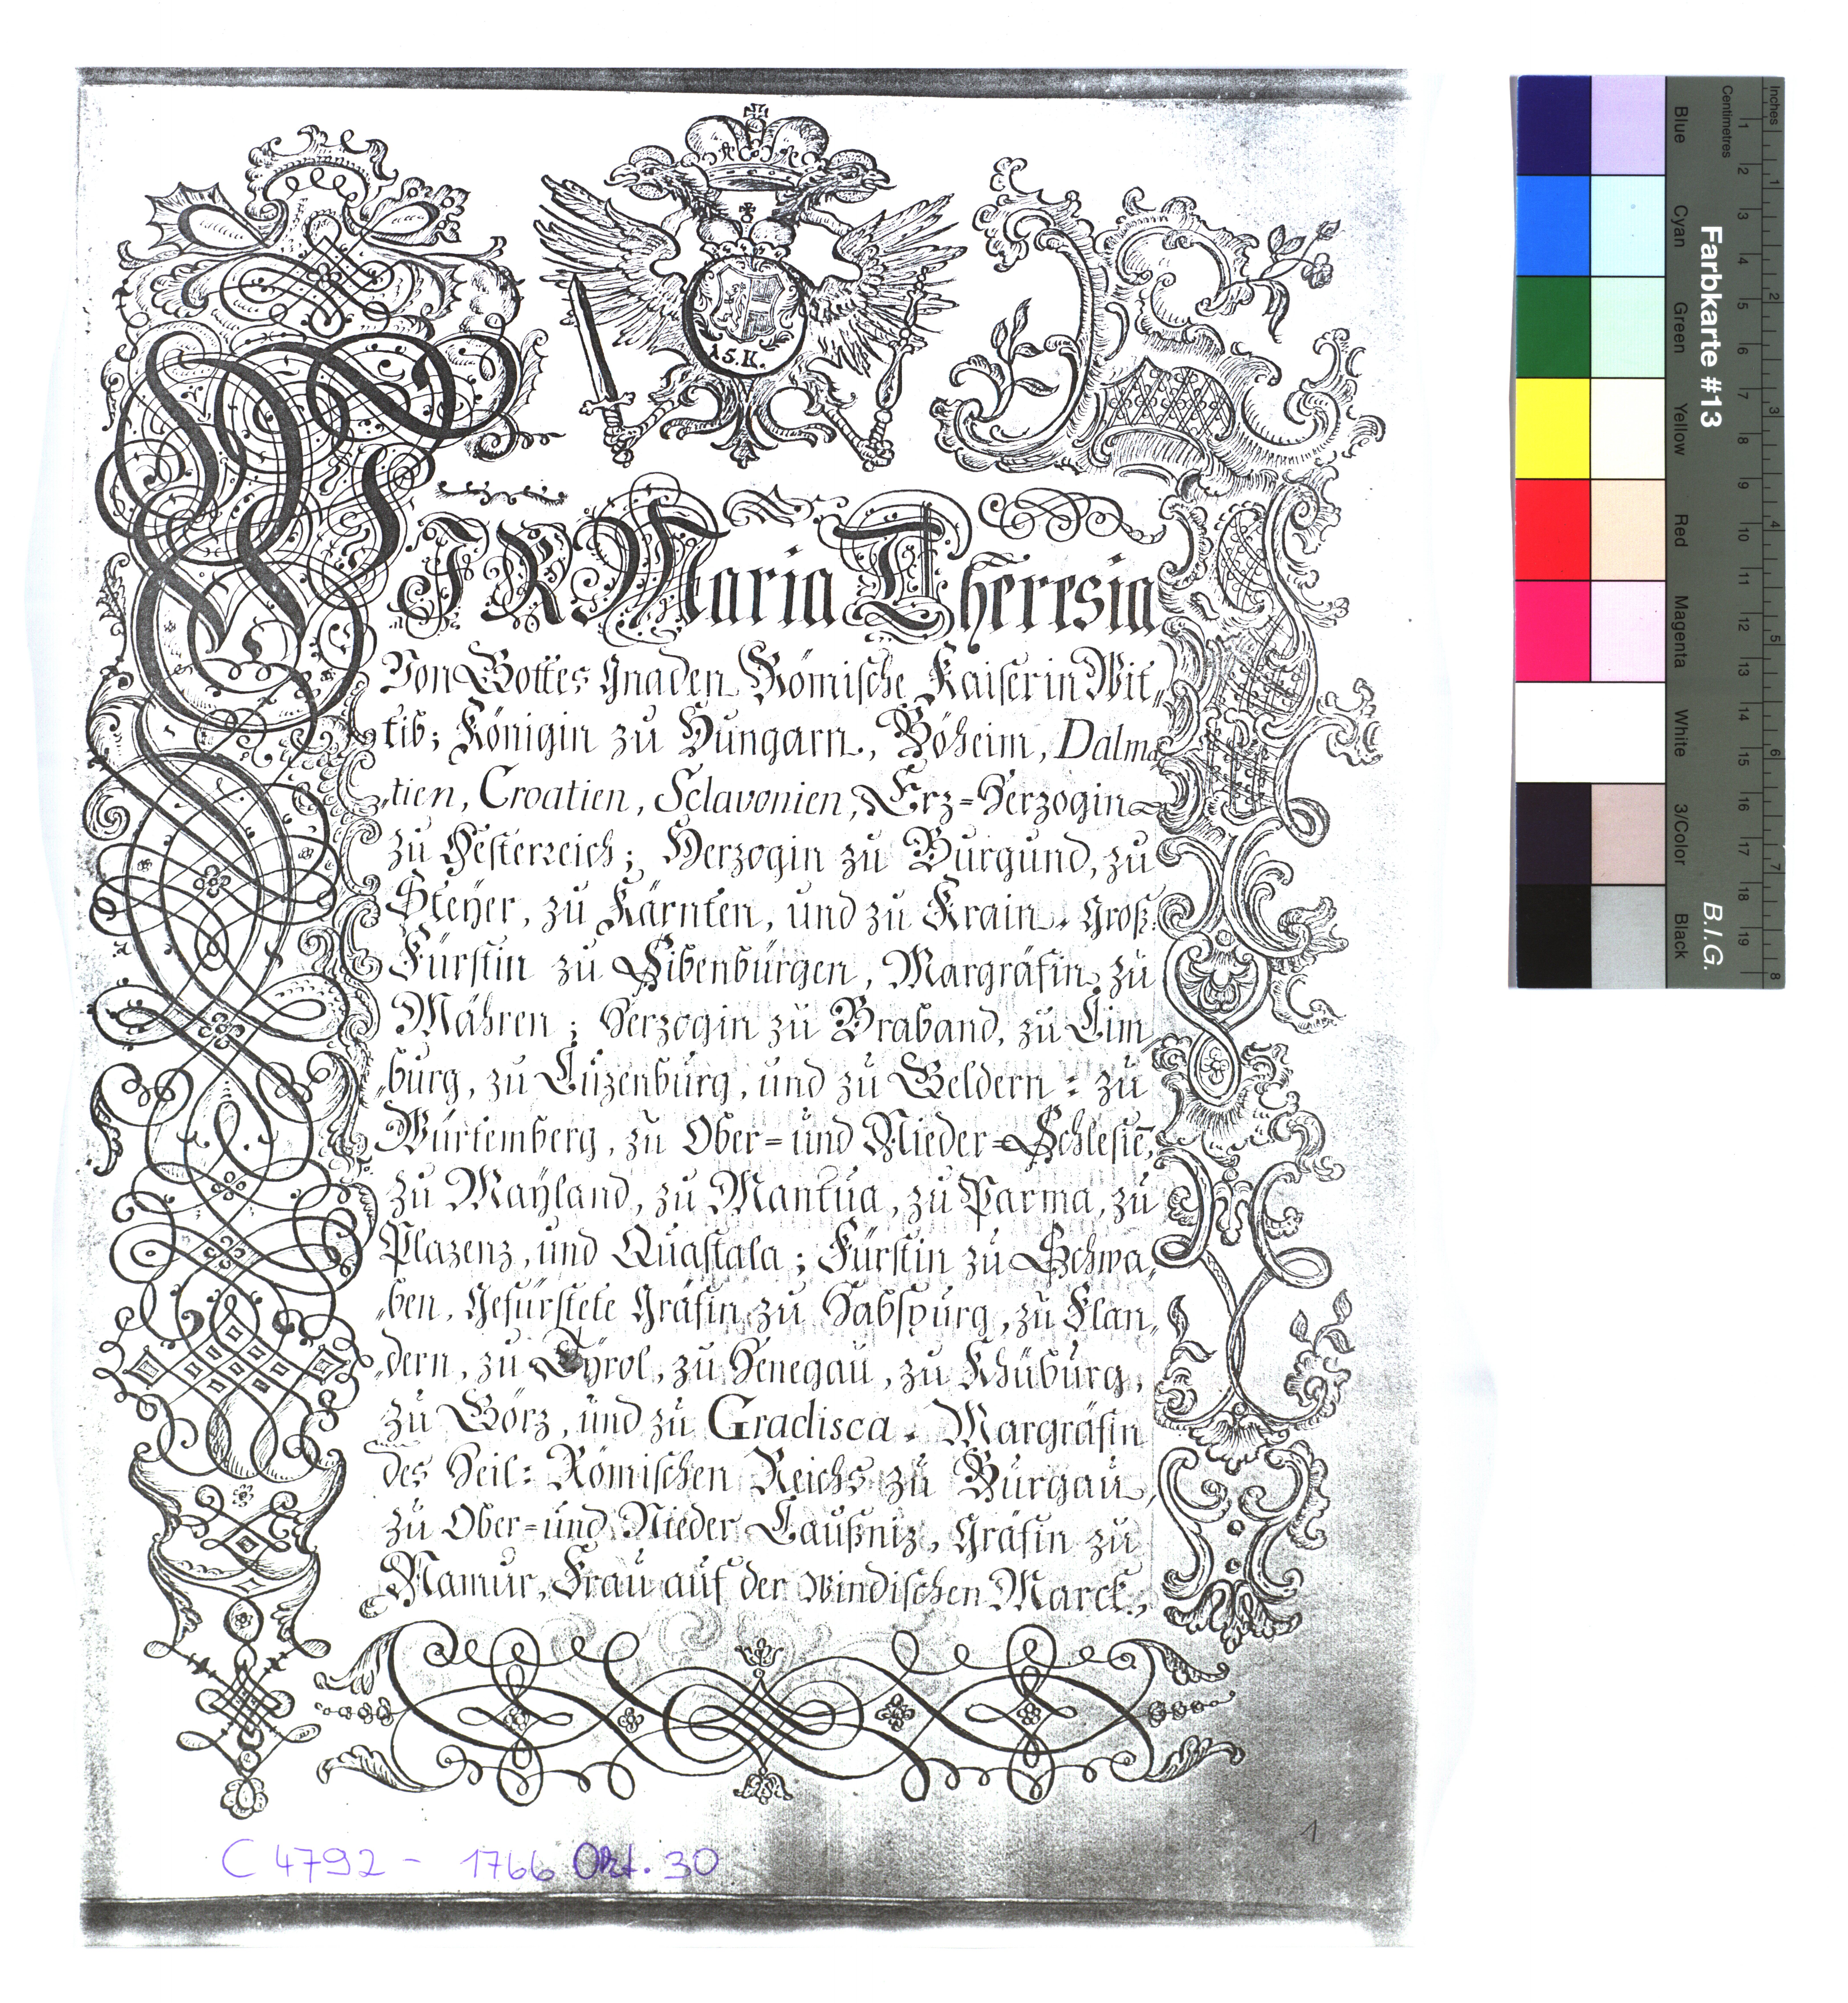 15.K.
WIR Maria Theresia
Von Gottes Gnaden Römische Kaiserin Wit„
„tib; Königin zu Hungarn, Böheim, Dalma
„tien, Croatien, Sclavonien, Erz=Herzogin
zu Oesterreich; Herzogin zu Burgund, zu
Steÿer, zu Kärnten, und zu Krain, Groß=
Fürstin zu Sibenbürgen, Margräfin zu
Mähren; Herzogin zu Braband, zu Lim
„burg, zu Luzenburg, und zu Geldern: zu
Würtemberg, zu Ober= und Nieder=Schlesiē,
zu Maÿland, zu Mantua, zu Parma, zu
Plazenz, und Quastala; Fürstin zu Schwa„
„ben, Gefürstete Gräfin zu Habspurg, zu Flan„
„dern, zu Tyrol, zu Henegau, zu Khüburg,
zu Görz, und zu Gradisca, Margräfin
des Heil: Römischen Reichs zu Burgau,
zu Ober= und Nieder Laußniz, Gräfin zu
Namur, Frau auf der Windischen Marck,
C 4792 - 1766 Okt. 30
1
Farbkarte #13
B.I.G.
Inches
Centimetres
Blue
Cyan
Green
Yellow
Red
Magenta
White
3/Color
Black
1 2 3 4 5 6 7 8 9 10 11 12 13 14 15 16 17 18 19
1 2 3 4 5 6 7 8